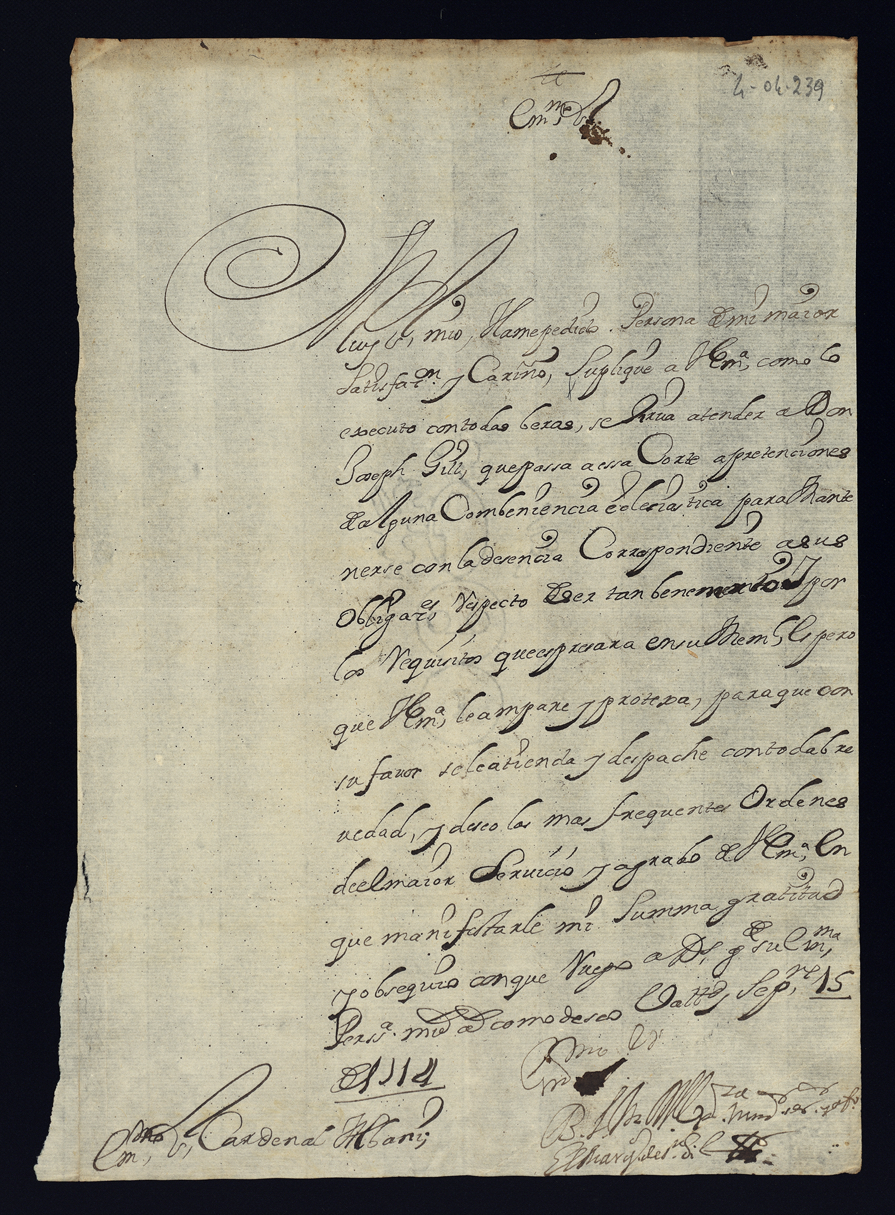 4-04-239
Em.mo S.r
Muy S.r mio, Hame pedido Persona de mi maior
Satisfaz.on y Cariño, suplique a V Em.a como lo
executo con todas beras, se sirva atender a Don
Joseph Gill, que passa a essa Corte a pretenciones
de alguna Combeniencia ecclesiastica para Mante
nerse con la desencia Correspondiente a sus
obbligaz.es, Respecto de ser tan benemerito y por
los Requisitos que espresara en su Mem.l, Espero
que V Em.a, le ampare y protexa, para que con
su favor se le atienda y despache con toda bre
vedad, y deseo las mas frequentes Ordenes
de el maior Servicio y agrado de V Em.a, En
que manifestarle mi summa gratitud
y obsequio con que Ruego a D.s g.de su Em.ma
Pers.a m.s a.s como deseo Vall.d, Sep.re 15
de 1714
Em.mo S.r
B. L. M. de V. Em.a
El Marques de
Em.mo S.r Cardenal Albani;